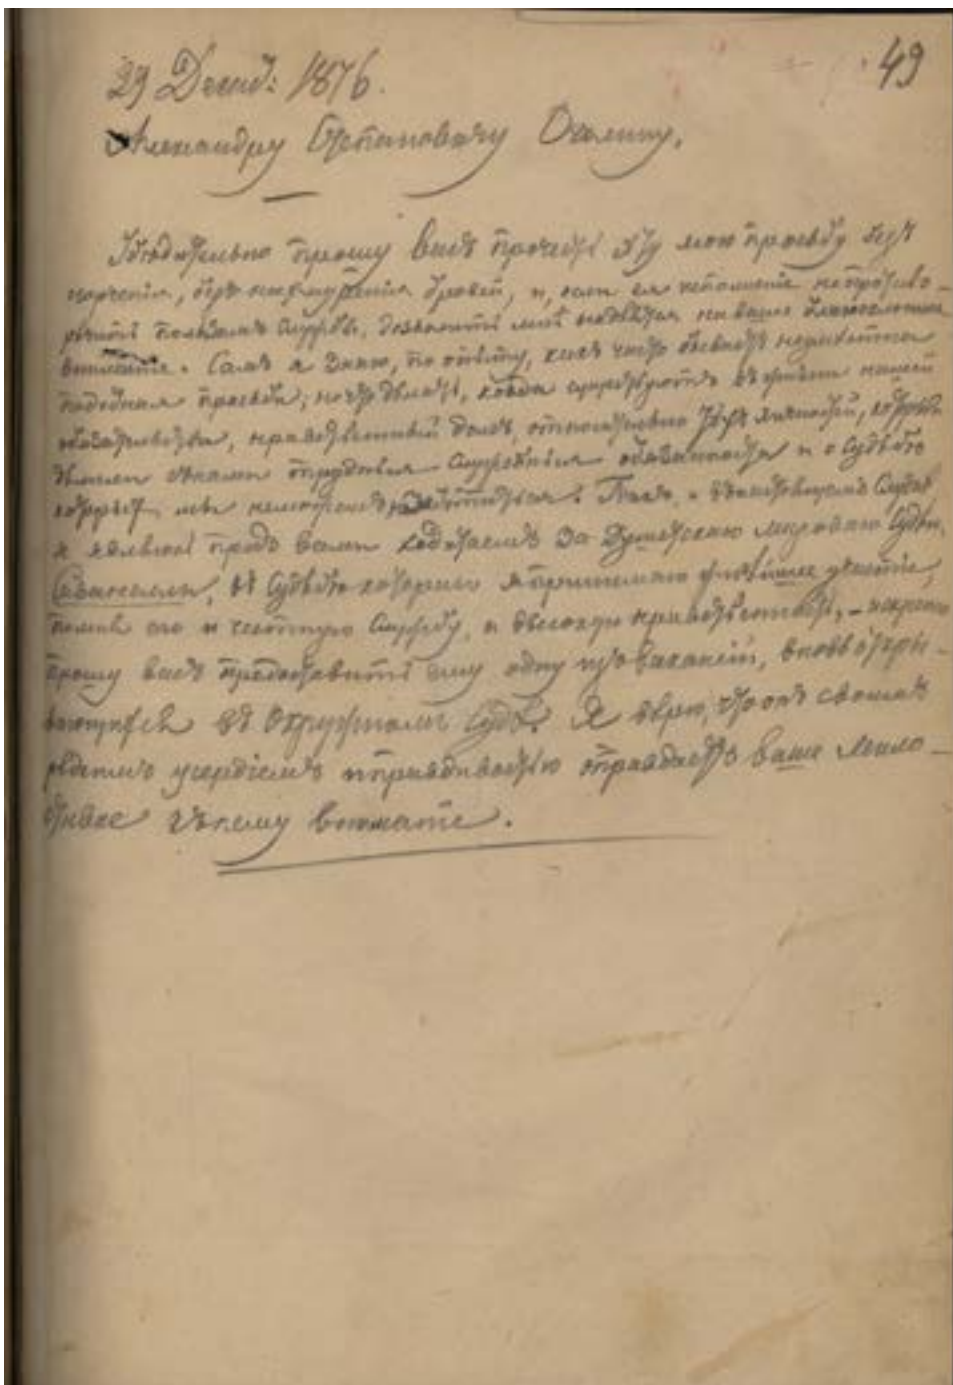 49
29 Декаб: 1876.
Александру Степановичу
Убедительно прошу васъ прочесть эту мою просьбу безъ
безъ нахмуренія бровей, и, если ея исполненіе непротиво-
речитъ пользамъ службы, дозвольте мнѣ надѣяться на ваше
вниманіе. Самъ я знаю, по опыту, какъ часто бываетъ
подобная просьба; но что дѣлать, когда существуютъ въ жизни нашей
обязательства, нравственный долгъ, относительно тѣхъ личностей, которые
служебныя обязанности и о судьбѣ
которыхъ мы неможемъ Такъ, въ настоящемъ случаѣ
я являюсь предъ вами ходатаемъ за Душетскаго мироваго Судью,
въ судьбѣ котораго я принимаю участіе,
его и честную службу, и высокую нравственность, – искренно
прошу васъ предоставить ему одну изъ вакансій, вновь откры-
вающихся въ Окружномъ Судѣ. Я вѣрю, что онъ своимъ
рѣдкимъ усердіемъ и правдивостью оправдаетъ ваше мило-
стивое къ нему вниманіе.